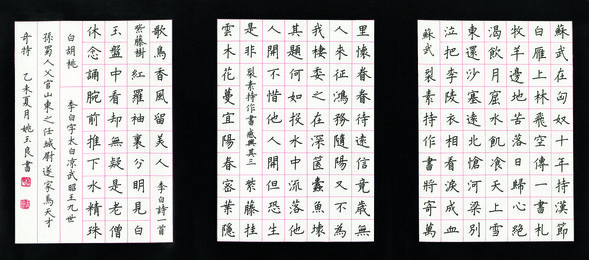 蘇武在匈奴十年持漢節
白雁上林飛空傳一書札
牧羊邊地苦落日歸心絕
渴飲月窟水飢餐天上雪
東還沙塞遠北愴河梁別
泣把李陵衣相看淚成血
蘇武 裂素持作書將寄萬
里懷眷眷待遠信竟歲無
人來征鴻務隨陽又不為
我棲委之在深篋蠹魚壞
其題何如投水中流落他
人開不惜他人開但恐生
是非 裂素持作書感興其三 紫藤桂
雲木花蔓宜陽春密葉隱
歌鳥香風留美人 李白詩一首
紫藤樹 紅羅袖裏分明見白
玉盤中看却無疑是老僧
休念誦腕前推下水精珠
白胡桃 李白字太白涼武昭王九世
孫蜀人父官山東之任城尉遂家焉天才
奇特 乙未夏月姚玉良書